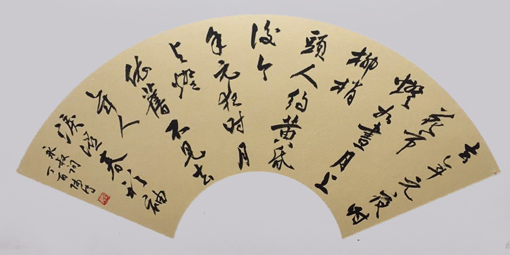 去年元夜时
花市
燈如畫月上
柳梢
頭人約黄昏
後今
年元夜时月
与燈
依舊不見去
年人
淚濕春衫袖
永叔词
丁酉